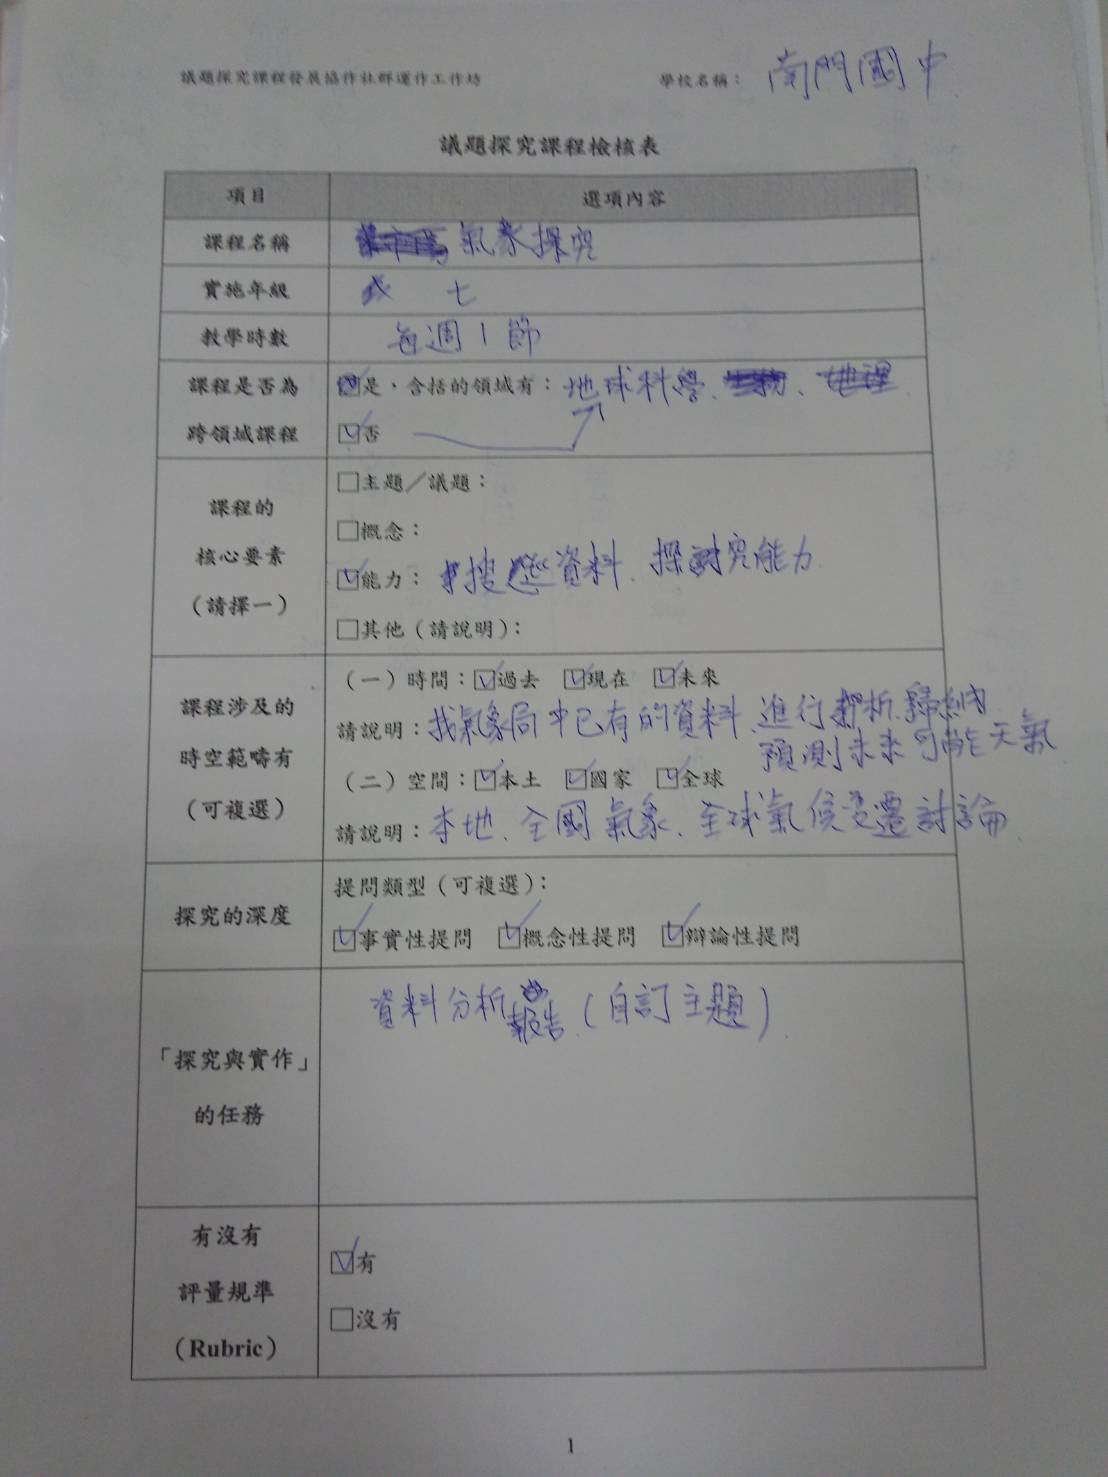 議題探究課程發展協作社群運作工作坊 學校名稱：南門國中
議題探究課程檢核表
項目 選項內容
課程名稱 氣象探究
實施年級 七
教學時數 每週1節
課程是否為跨領域課程
☑是，含括的領域有：地球科學、生物、地理
☑否
課程的
核心要素
（請擇一）
□主題／議題：
□概念：
☑能力：搜尋資料、探究能力
□其他（請說明）：
課程涉及的
時空範疇有
（可複選）
（一）時間：☑過去 ☑現在 ☑未來
請說明：找氣象局中已有的資料、進行分析、歸納
預測未來可能天氣
（二）空間：☑本土 ☑國家 ☑全球
請說明：本地、全國氣象、全球氣候變遷討論
探究的深度
提問類型（可複選）：
☑事實性提問 ☑概念性提問 ☑辯論性提問
「探究與實作」
的任務
資料分析報告（自訂主題）
有沒有
評量規準
（Rubric）
☑有
□沒有
1